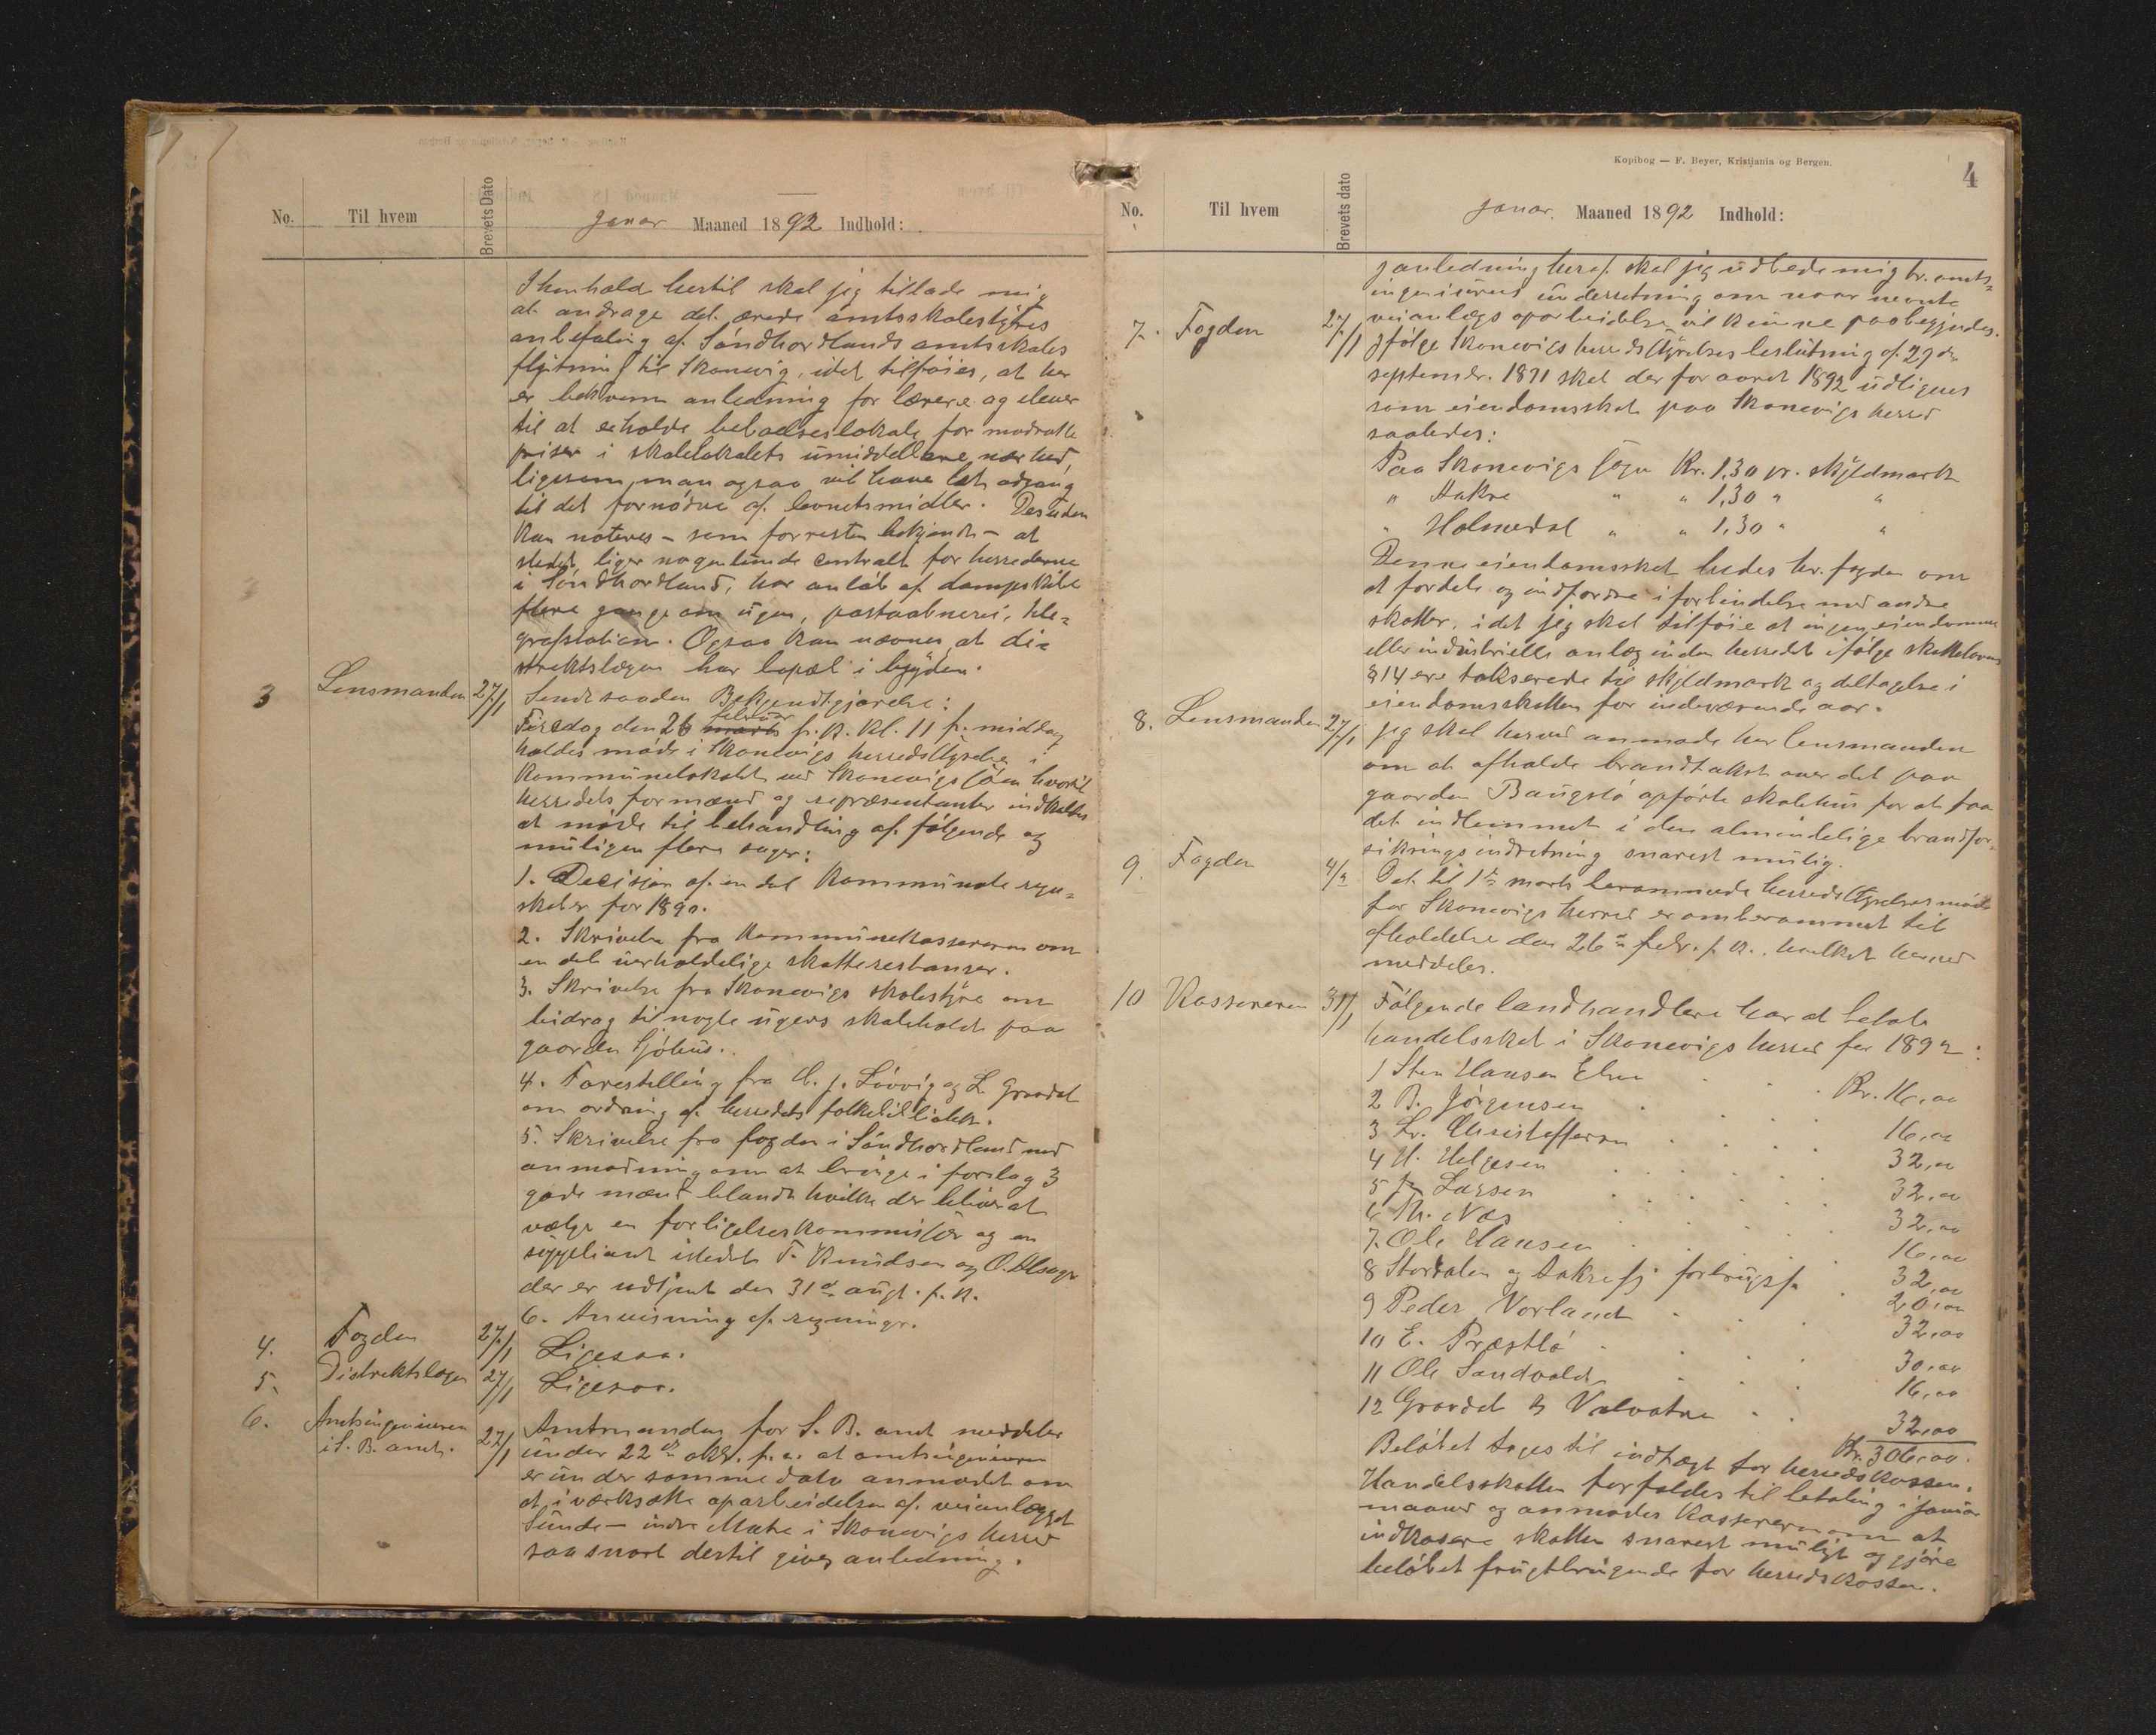 No. Til hvem Brevets Dato januar Maaned 1892 Indhold:
I henhold hertil skal jeg tillade mig
at andrage det ærede amtsskolestyres
anbefaling af Söndhordlands amtsskoles
flytning til Skonevig, idet tilföies, at her
er bekvem anledning for lærere og elever
til at erholde beboelseslokale for moderate
priser i skolelokalets umiddelbare nærhed,
ligesom man ogsaa vil have let adgang
til det fornödne af levnetsmidler. Desuden
kan noteres – som forresten bekjendt – at
stedet ligger nogenlunde centralt for herrederne
i Söndhordland, har anlöb af dampskibe
flere gange om ugen, postaabneri, tele=
grafstation. Ogsaa kan nævnes, at di=
striktslægen har bopæl i bygden.
3 Lensmanden 27/1 Sendt saaden Bekjendtgjörelse:
februar
Fredag den 26 marts f. k. kl. 11 fr. middag
holdes möde i Skonevigs herredsstyrelse i
kommunelokalet ved Skonevigssjöen hvortil
herredets formænd og repræsentanter indkaldes
at möde til behandling af følgende og
muligen flere sager:
1. Decisjon af en del kommunale regn=
skaber for 1890.
2. Skrivelse fra kommunekassereren om
en del uerholdelige skatterestanser.
3. Skrivelse fra Skonevigs skolestyre om
bidrag til nogle ugers skolehold paa
gaarden Sjöhus.
4. Forestilling fra C. J. Lövvig og L. Graadal
om ordning af herredets folkebibliothek.
5. Skrivelse fra fogden i Söndhordland med
anmodning om at bringe i forslag 3
gode mænd blandt hvilke der bliver at
vælge en forligelseskommissær og en
suppleant istedet T. Knudsen og O. Alsager
der er udtjent den 31te augt. f. k.
6. Anvisning af regninger.
4. Fogden 27/1 Ligesaa.
5. Distriktslægen 27/1 Ligesaa.
6. Amtsingeniøren 27/1 Amtmanden for S. B. amt meddeler
i S. B. amt. under 22de oktr. f. a. at amtsingeniøren
er under samme dato anmodet om
at iværksætte oparbeidelsen af veianlægget
Sunde – indre Matre i Skonevigs herred
saasnart dertil gives anledning.
Kopibog — F. Beyer, Kristiania og Bergen.
4
No. Til hvem Brevets dato januar. Maaned 1892 Indhold:
I anledning heraf skal jeg udbede mig hr. amts=
ingeniørens underretning om naar nevnte
veianlægs oparbeidelse vil kunne paabegyndes.
7. Fogden 27/1 Ifölge Skonevigs herredsstyrelses beslutning af 29de
septembr. 1891 skal der for aaret 1892 udlignes
som eiendomsskat paa Skonevigs herred
saaledes:
Paa Skonevigs sogn Kr. 1,30 pr. skyldmark
" Aakre " " 1,30 " "
" Holmedal " " 1,30 " "
Denne eiendomsskat bedes hr. fogden om
at fordele og indfordre i forbindelse med andre
skatter, idet jeg skal tilföie at ingen eiendomme
eller industrielle anlæg inden herredet ifölge skattelovens
§ 14 ere takserede til skyldmark og deltagelse i
eiendomsskatten for indeværende aar.
8. Lensmanden 27/1 Jeg skal herved anmode her lensmanden
om at afholde brandtakst over det paa
gaarden Baugstö opförte skolehus for at faa
det indlemmet i den almindelige brandfor=
sikringsindretning snarest mulig.
9. Fogden 4/2 Det til 1ste marts berammede herredsstyrelsesmöde
for Skonevigs herred er omberammet til
afholdelse den 26de febr. f. k., hvilket herved
meddeles.
10 Kassereren 31/1 Fölgende landhandlere har at betale
handelsskat i Skonevigs herred for 1892:
1 Sten Hansen Elve . . Kr. 16,00
2 B. Jörgensen . . . 16,00
3 Lr. Christoffersen . . . 32,00
4 H. Helgesen . . . 32,00
5 Larsen . . . 32,00
6 Th. Næs . . . 16,00
7. Ole Hansen . . . 32,00
8 Stordalen og Aakrefj. forbrugsf. . 20,00
9 Peder Vorland . . . 32,00
10 E. Præstlö . . . 30,00
11 Ole Sandvold . . . 16,00
12 Graadal & Valvatne . . 32,00
Kr. 306,00.
Belöbet tages til indtægt for herredskassen.
Handelsskatten forfalder til betaling i januar
maaned og anmodes kassereren om at
indkassere skatten snarest muligt og gjöre
belöbet frugtbringende for herredskassen.